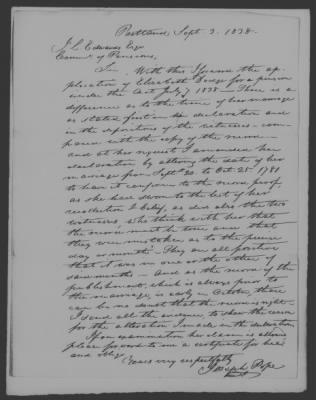 Portland Sept 3. 1838.
J. L. Edwards Esq
Commr of Pensions,
Sir, With this I send the ap-
plication of Elizabeth Dodge for a pension
under the Act July 7 1838 — There is a
difference as to the time of her marriage
as stated first in the declaration and
in the depositions of the witnesses - com-
pared with the copy of the record —
and at her request I amended her
declaration by altering the date of her
marriage from Sept 20 to Oct 25 1781
to have it conform to the record proof,
as she have sworn to the best of her
recollection & belief, as did also the two
witnesses, who think with her that
the record must be true and that
they were mistaken as to the precise
day or month. They are all positive
that it was in one or the other of
said months — And as the record of the
publishment, which is always prior to
the marriage, is early in October, there
can be no doubt that the record is right -
I send all the evidence, to show the reason
for the alteration I made in the declaration
If on examination her claim is allowed
please forward to me a certificate for her
and oblige
Yours very respectfully
Joseph Pope